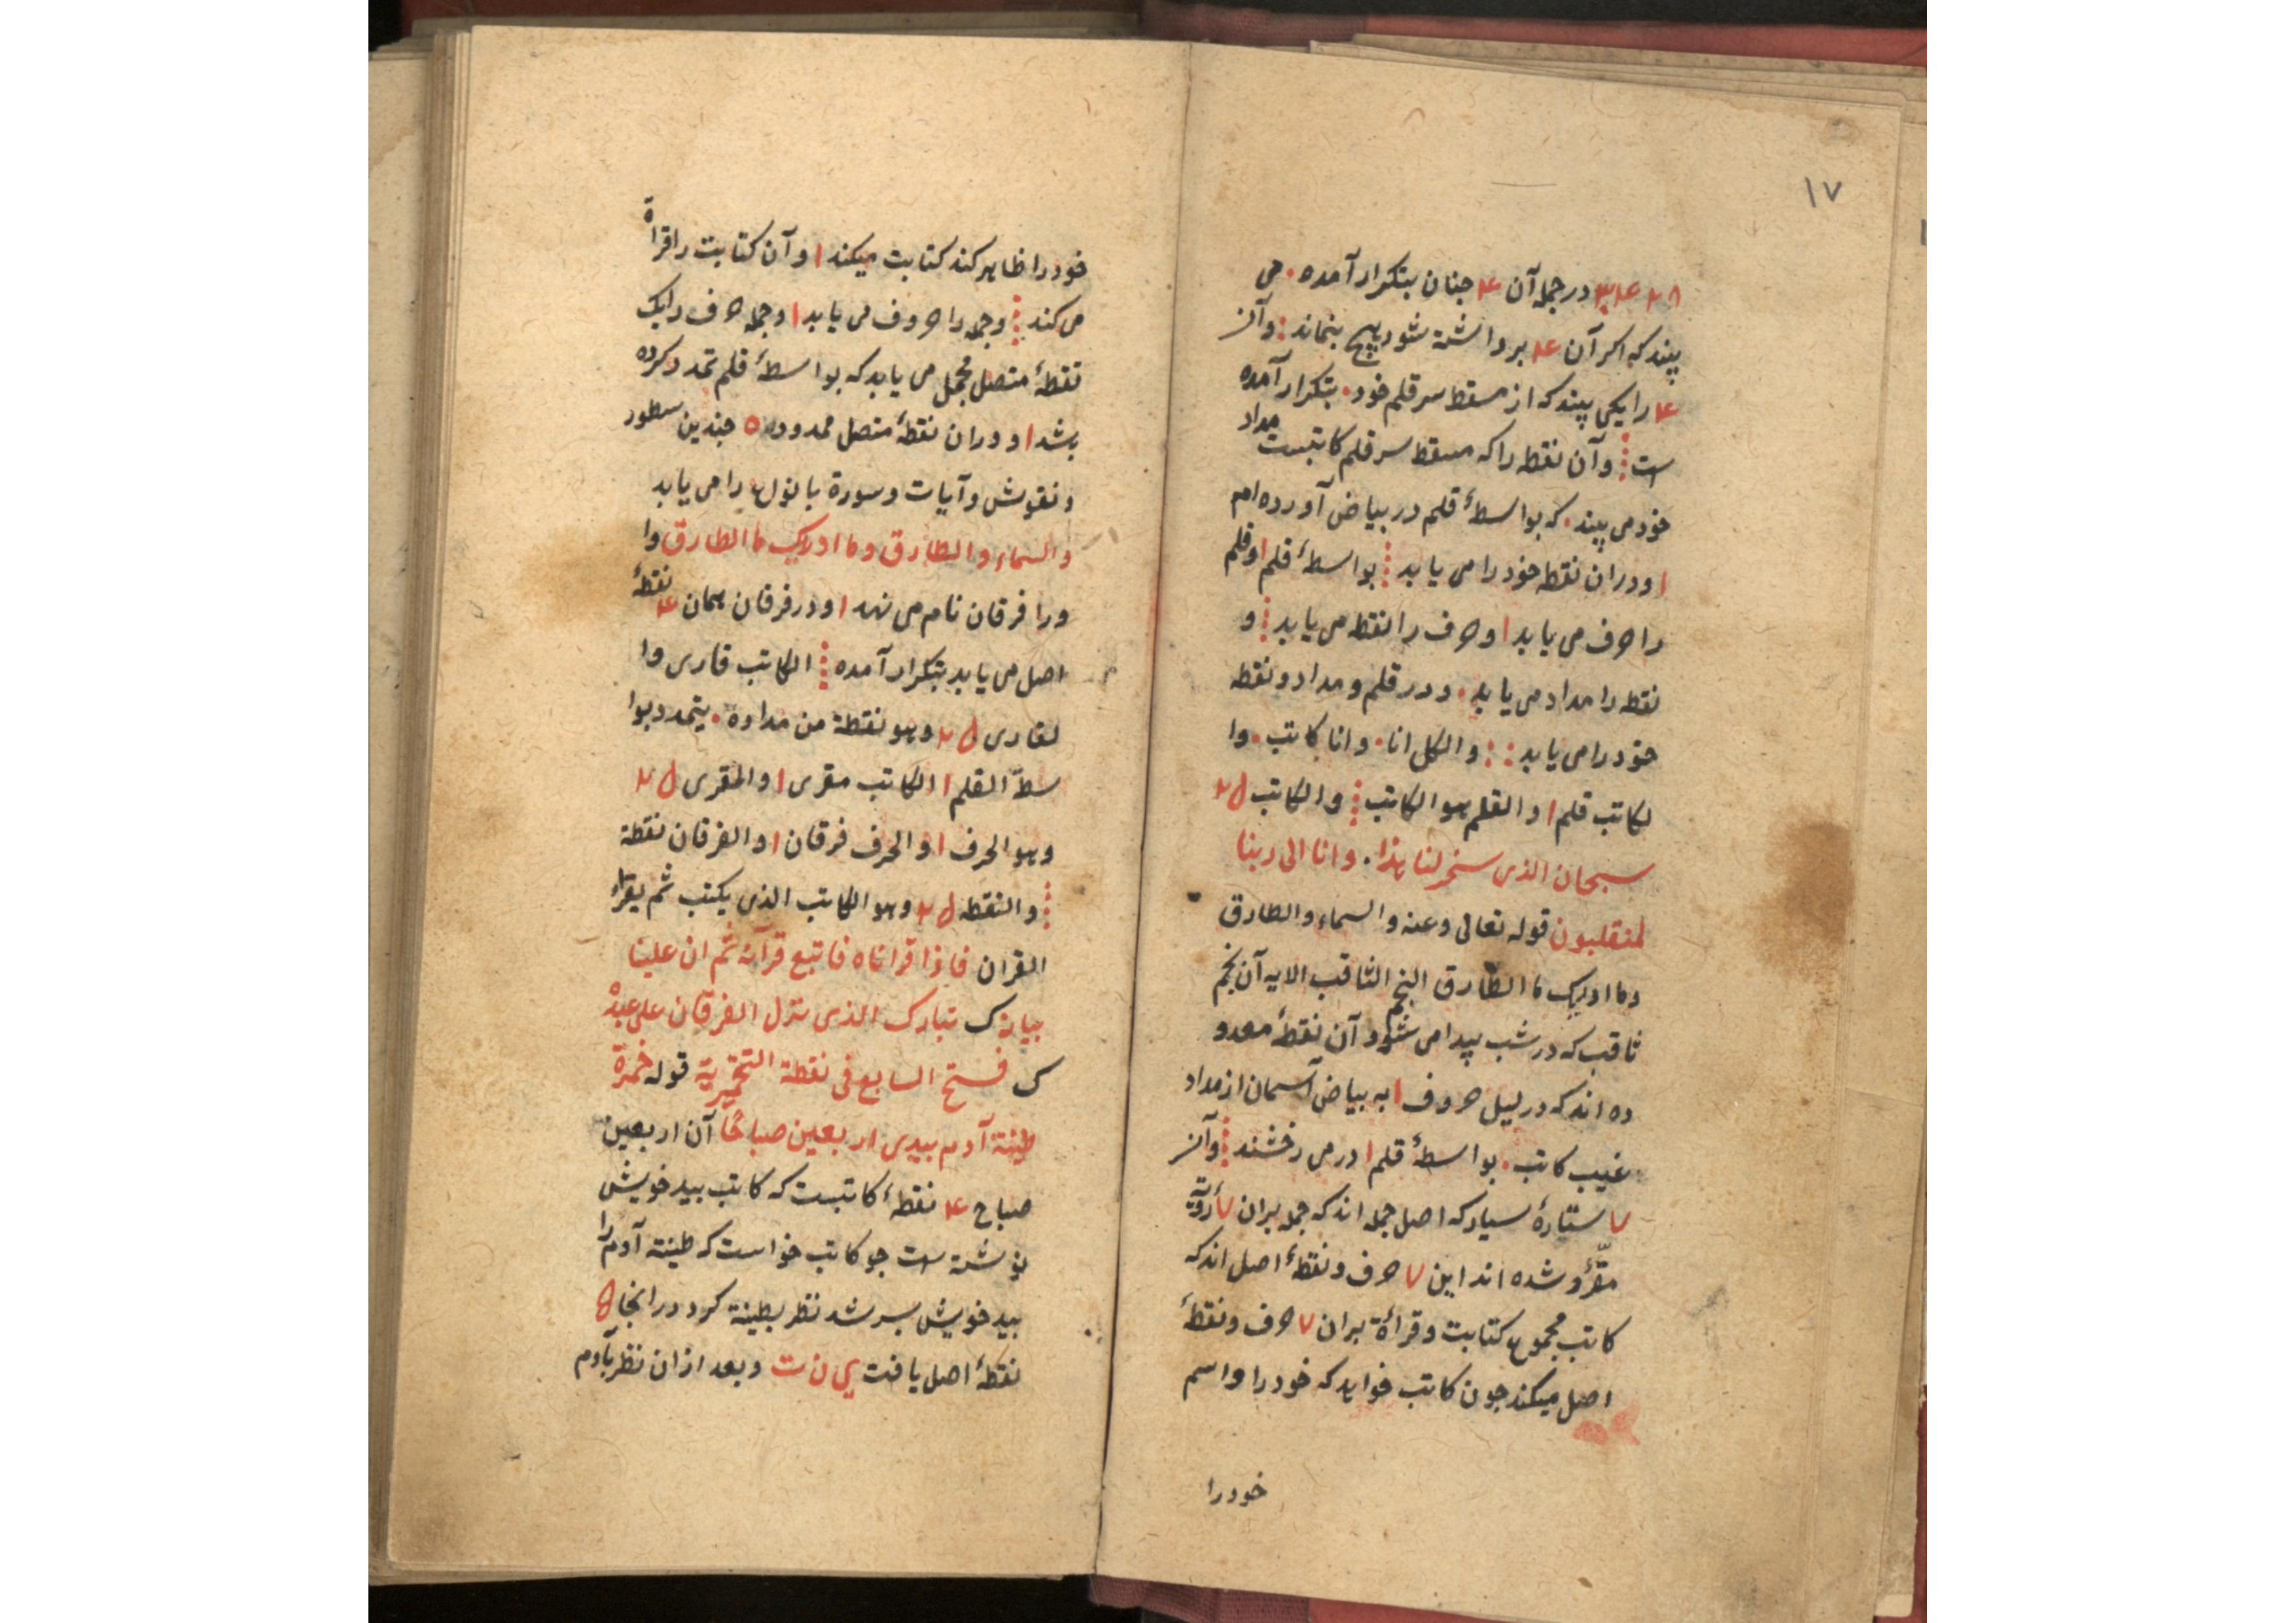 ۱۷
۲۸ ۴ ۳۴ در جمله آن ۴ جنان بتکرار آمده . می
بیند که اکر آن ۴ برداشته شود هیچ بنماند وآن
۴ را یکی بیند که از مسقط سر قلم خود . بتکرار آمده
است وآن نقطه را که مسقط سر قلم کاتبست مداد
خود می بیند . که بواسطهٔ قلم در بیاض آورده ام
ا ودران نقطه خود را می یابد بواسطهٔ قلم ا وقلم
را حرف می یابد ا وحرف را نقطه می یابد و
نقطه را مداد می یابد . ودر قلم ومداد ونقطه
خود را می یابد : : والکل انا . وانا کاتب . وا
لکاتب قلم ا والقلم هو الکاتب والکاتب
سبحان الذی سخر لنا هذا . وانا الی ربنا
لمنقلبون قوله تعالی وعنه والسماء والطارق
وما ادریک ما الطارق النجم الثاقب الایه آن نجم
ثاقب که در شب پیدا می شود آن نقطهٔ معدو
ده اند که در لیل حروف ا به بیاض آسمان از مداد
غیب کاتب . بواسطهٔ قلم ا در می رخشند وآن
۷ ستارهٔ سیار که اصل جمله اند که جمله بران ۷
مقرّؤ شده اند این ۷ حرف ونقطهٔ اصل اند که
کاتب مجموع کتابت وقرأة بران ۷ حرف ونقطهٔ
اصل میکند جون کاتب خواهد که خود را واسم
خود را
خود را ظاهر کند کتابت میکند ا وآن کتابت را قراة
می کند وجمله را حروف می یابد ا وجمله حرف را یک
نقطهٔ متصل مجمل می یابد که بواسطهٔ قلم تمدد کرده
باشد ا ودران نقطهٔ متصل ممدوده ٥ جندین سطور
ونقوش وآیات وسورة بانواع را می یابد
والسماء والطارق وما ادریک ما الطارق وا
ورا فرقان نام می نهد ا ودر فرقان همان ۴ نقطهٔ
اصل می یابد بتکرار آمده الکاتب قاری وا
لقاری وهو نقطة من مداده . یتمدد بوا
سطة القلم ا الکاتب مقری ا والمقری
وهو الحرف ا والحرف فرقان ا والفرقان نقطة
والنقطه وهو الکاتب الذی یکتب ثم یقراء
القران فاذا قراناه فاتبع قرآنه ثم ان علینا
بیانه ک تبارک الذی نزل الفرقان علی عبده
ک فتح السابع فی نقطة التخمیریة قوله خمرة
طینة آدم بیدی اربعین صباحًا آن اربعین
صباح ۴ نقطهٔ کاتبست که کاتب بید خویش
نوشته است جو کاتب خواست که طینة آدم را
بید خویش بسرشد نظر بطینة کرد درانجا ٥
نقطهٔ اصل یافت ی ن ت وبعد ازان نظر بآدم